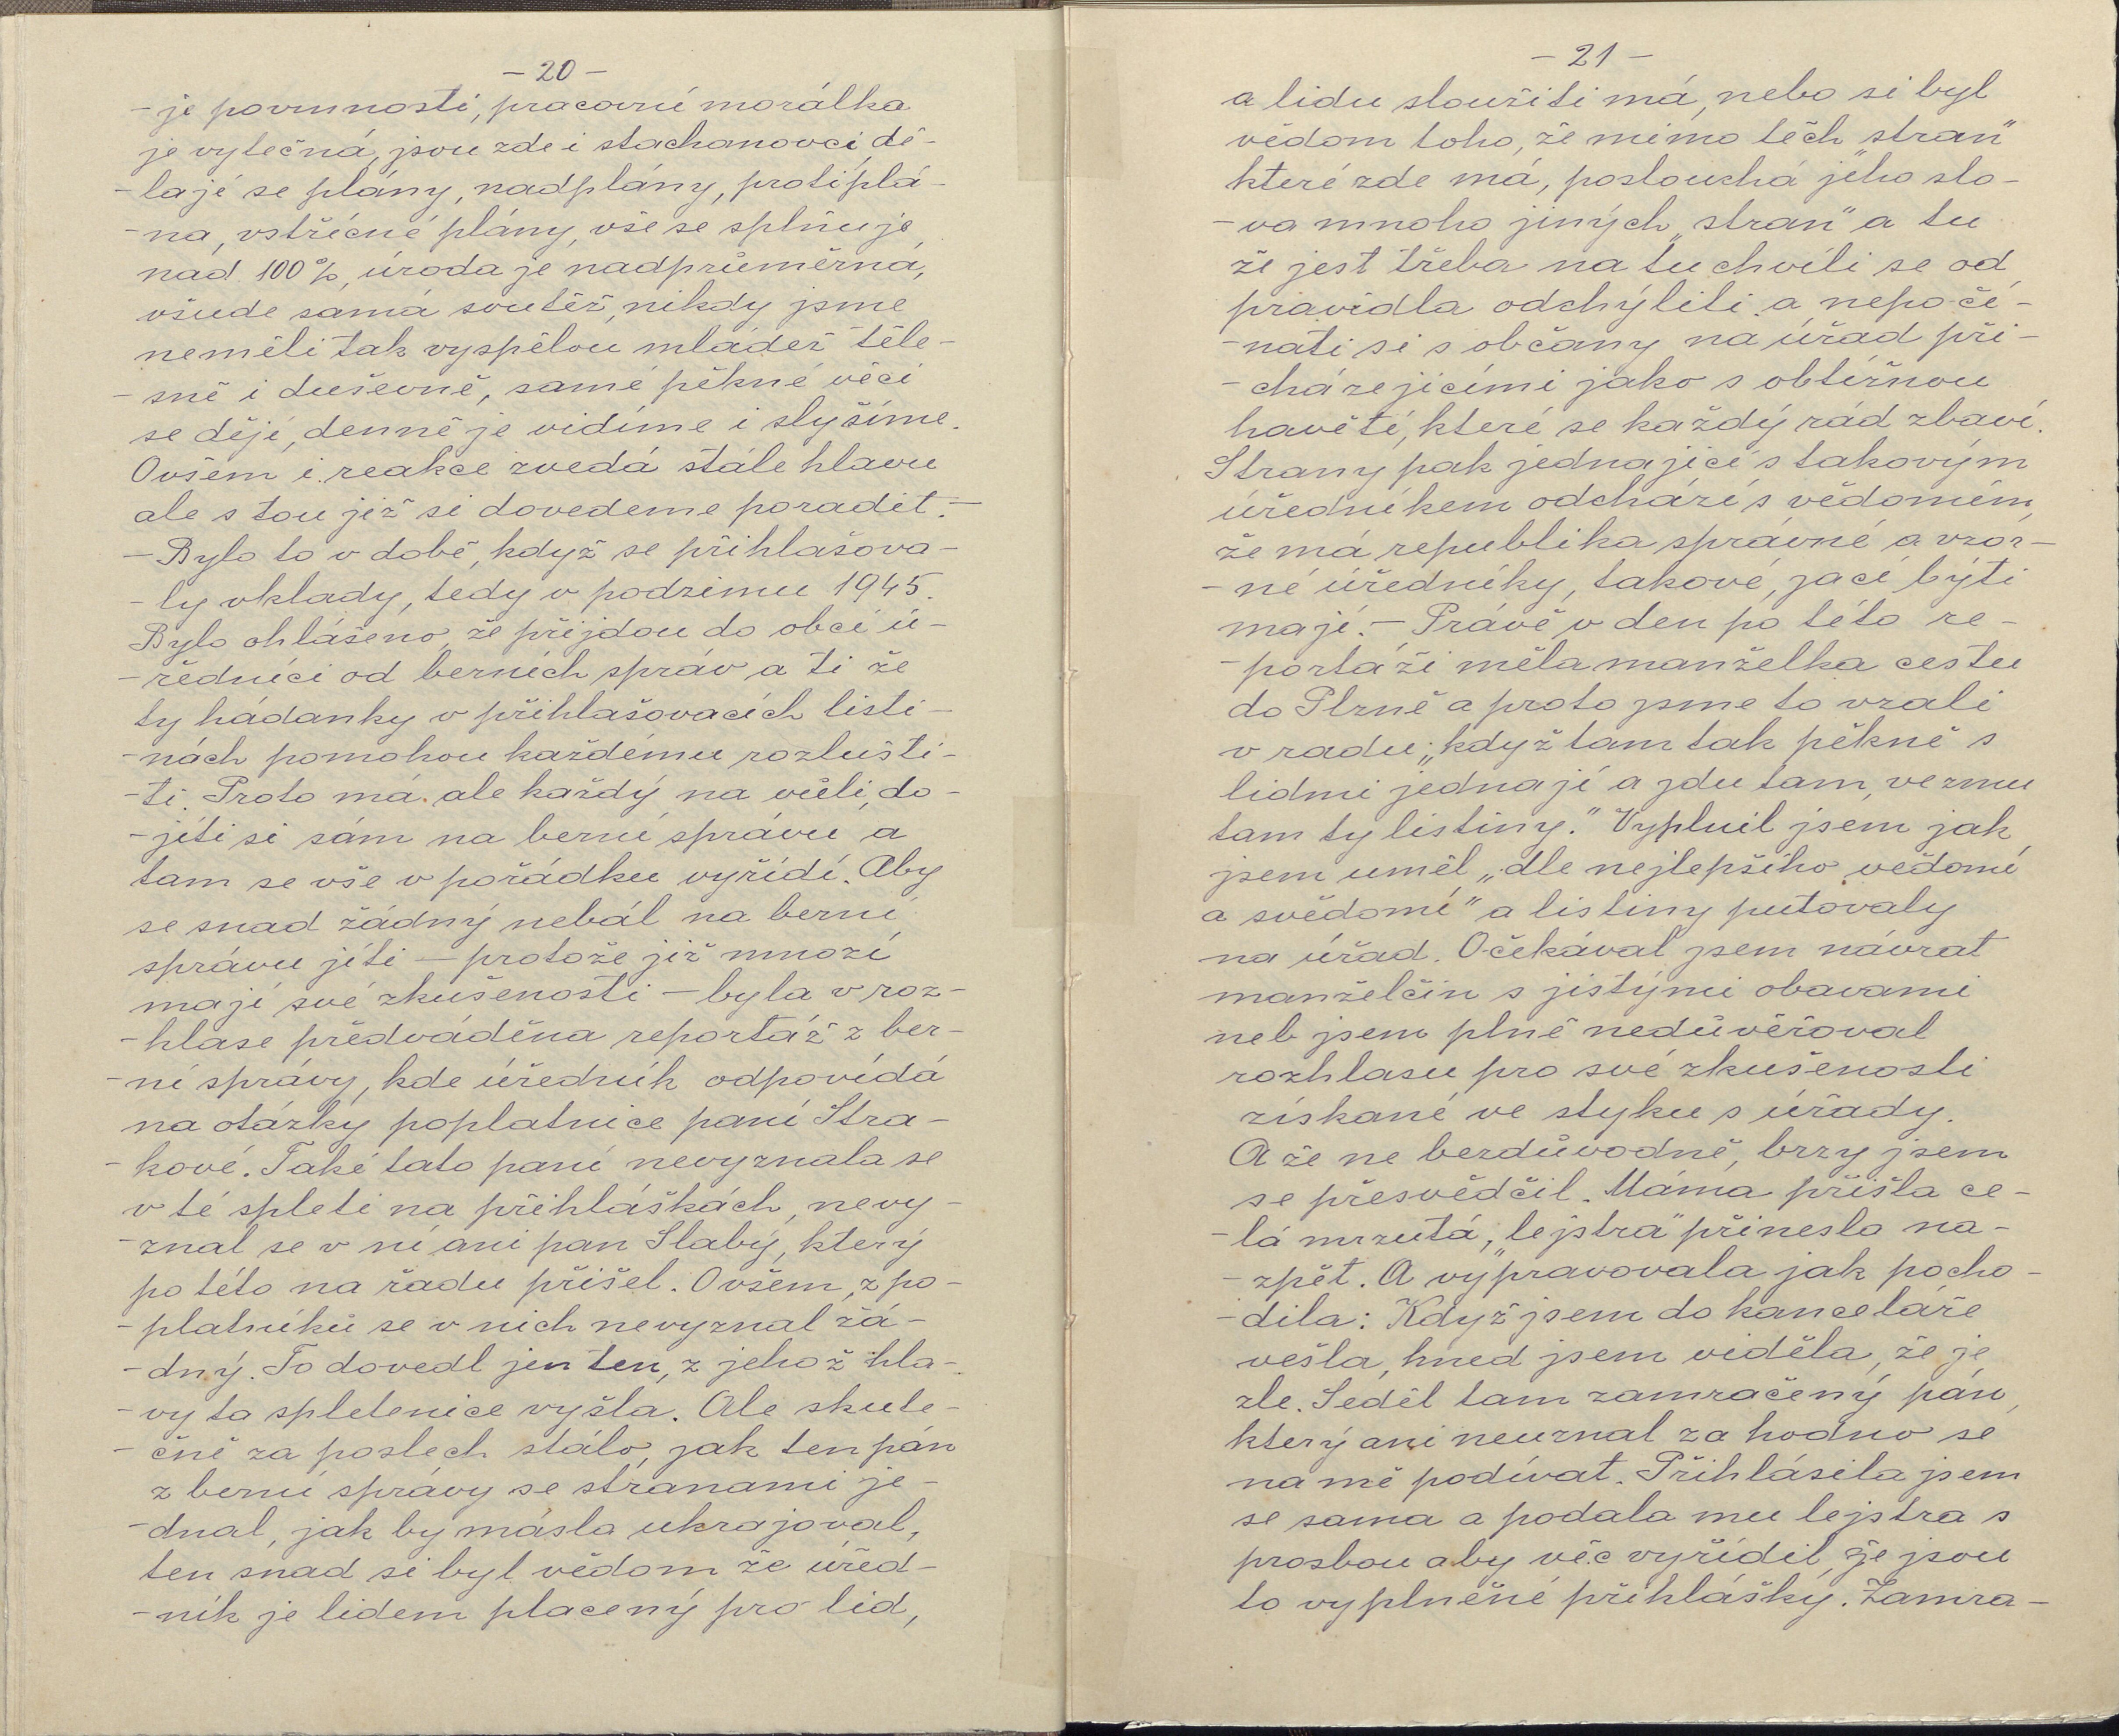 - 20 -
- je povinnosti, pracovní morálka
je vylečná, jsou zde i stachanovci, dě-
- lají se plány, nadplány, protiplá-
- na, vstřícné plány, vše se splňuje
nad 100%, úroda je nadprůměrná,
všude samá soutěž, nikdy jsme
neměli tak vyspělou mládež těle-
- sně i duševně, samé pěkné věci
se dějí, denně je vidíme i slyšíme.
Ovšem i reakce zvedá stále hlavu
ale s tou již si dovedeme poradit. -
- Bylo to v době, když se přihlašova-
- ly vklady, tedy v podzimu 1945.
Bylo ohlášeno, že přijdou do obcí ú-
- ředníci od berních správ a ti že
ty hádanky v přihlašovacích listi-
- nách pomohou každému rozlušti-
- ti. Proto má ale každý na vůli, do-
- jíti si sám na berní správu a
tam se vše v pořádku vyřídí. Aby
se snad žádný nebál na berní
správu jíti - protože již mnozí
mají své zkušenosti - byla v roz-
- hlase předváděna reportáž z ber-
- ní správy, kde úředník odpovídá
na otázky poplatnice paní Stra-
- kové. Také tato paní nevyznala se
v té spleti na přihláškách, nevy-
- znal se v ní ani pan Slabý, který
po této na řadu přišel. Ovšem, z po-
- platníků se v nich nevyznal žá-
- dný. To dovedl jen ten, z jehož hla-
- vy ta spletenice vyšla. Ale skute-
- čně za poslech stálo, jak ten pán
z berní správy se stranami je-
- dnal, jak by másla ukrajoval,
ten snad si byl vědom že úřed-
- ník je lidem placený pro lid,
- 21 -
a lidu sloužiti má, nebo si byl
vědom toho, že mimo těch „stran"
které zde má, poslouchá jeho slo-
- va mnoho jiných „stran" a tu
že jest třeba na tu chvíli se od
pravidla odchýliti a nepočí-
- nati si s občany na úřad při-
- cházejícími jako s obtížnou
havětí, které se každý rád zbaví.
Strany pak jednající s takovým
úředníkem odchází s vědomím,
že má republika správné a vzor-
- né úředníky, takové, jací býti
mají. - Právě v den po této re-
- portáži měla manželka cestu
do Plzně a proto jsme to vzali
v radu; „když tam tak pěkně s
lidmi jednají a jdu tam, vezmu
tam ty listiny." Vyplnil jsem jak
jsem uměl „dle nejlepšího vědomí
a svědomí" a listiny putovaly
na úřad. Očekával jsem návrat
manželčin s jistými obavami
neb jsem plně nedůvěřoval
rozhlasu pro své zkušenosti
získané ve styku s úřady.
A že ne bezdůvodně, brzy jsem
se přesvědčil. Máma přišla ce-
- lá mrzutá, „lejstra" přinesla na-
- zpět. A vypravovala jak pocho-
- dila: Když jsem do kanceláře
vešla, hned jsem viděla, že je
zle. Seděl tam zamračený pán,
který ani neuznal za hodno se
na mě podívat. Přihlásila jsem
se sama a podala mu lejstra s
prosbou aby věc vyřídil, že jsou
to vyplněné přihlášky. Zamra-